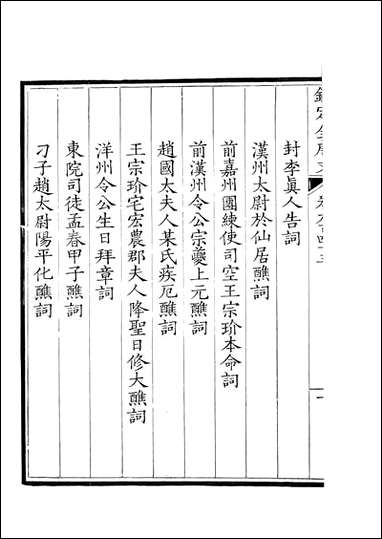 欽定全唐文
封李真人告詞
漢州太尉於仙居醮詞
前嘉州團練使司空王宗玠本命詞
前漢州令公宗夔上元醮詞
趙國太夫人某氏疾厄醮詞
王宗玠宅宏農郡夫人降聖日修大醮詞
洋州令公生日拜章詞
東院司徒孟春甲子醮詞
刁子趙太尉陽平化醮詞